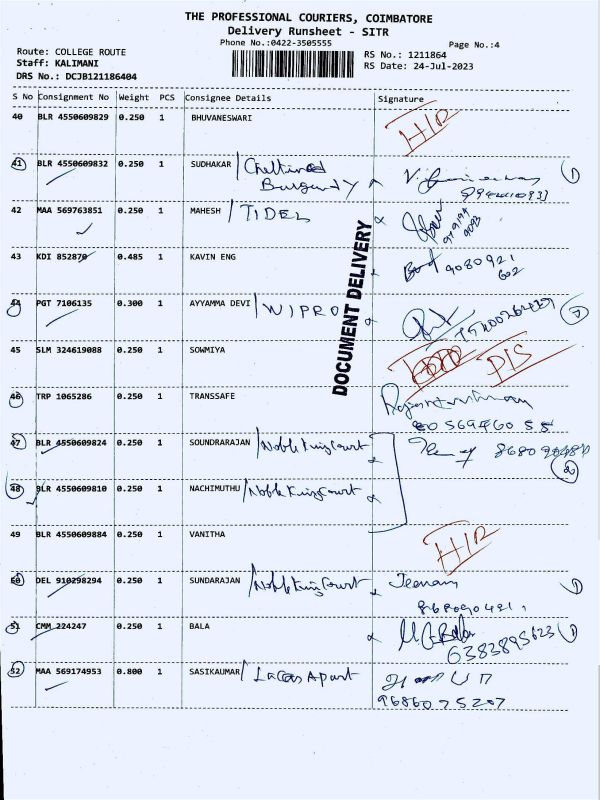 THE PROFESSIONAL COURIERS, COIMBATORE
Delivery Runsheet - SITR
Phone No.:0422-3505555
Page No.:4
Route: COLLEGE ROUTE
Staff: KALIMANI
DRS No.: DCJB121186404
RS No.: 1211864
RS Date: 24-Jul-2023
S No Consignment No Weight PCS Consignee Details Signature
40 BLR 4550609829 0.250 1 BHUVANESWARI
41 BLR 4550609832 0.250 1 SUDHAKAR / Burgundy
42 MAA 569763851 0.250 1 MAHESH / TIDEL
43 KDI 852870 0.485 1 KAVIN ENG 9080921 602
44 PGT 7106135 0.300 1 AYYAMMA DEVI / WIPRO
45 SLM 324619088 0.250 1 SOWMIYA
46 TRP 1065286 0.250 1 TRANSSAFE
47 BLR 4550609824 0.250 1 SOUNDRARAJAN / Noble King Court
48 BLR 4550609810 0.250 1 NACHIMUTHU / Noble King Court
49 BLR 4550609884 0.250 1 VANITHA
50 DEL 910298294 0.250 1 SUNDARAJAN / Noble King Court
51 CMM 224247 0.250 1 BALA 6383895623
52 MAA 569174953 0.800 1 SASIKAUMAR / Apart
9686075207
DOCUMENT DELIVERY